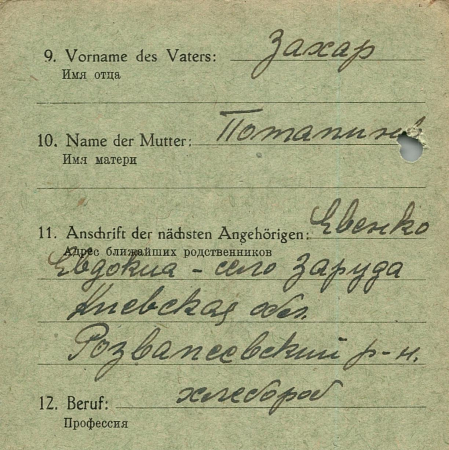 9. Vorname des Vaters: Захар
Имя отца
10. Name der Mutter: Потапина
Имя матери
11. Anschrift der nächsten Angehörigen: Евенко
Адрес ближайших родственников
Евдокиа - село Заруда
Киевская обл.
Розважевский р-н.
12. Beruf: хлебороб
Профессия